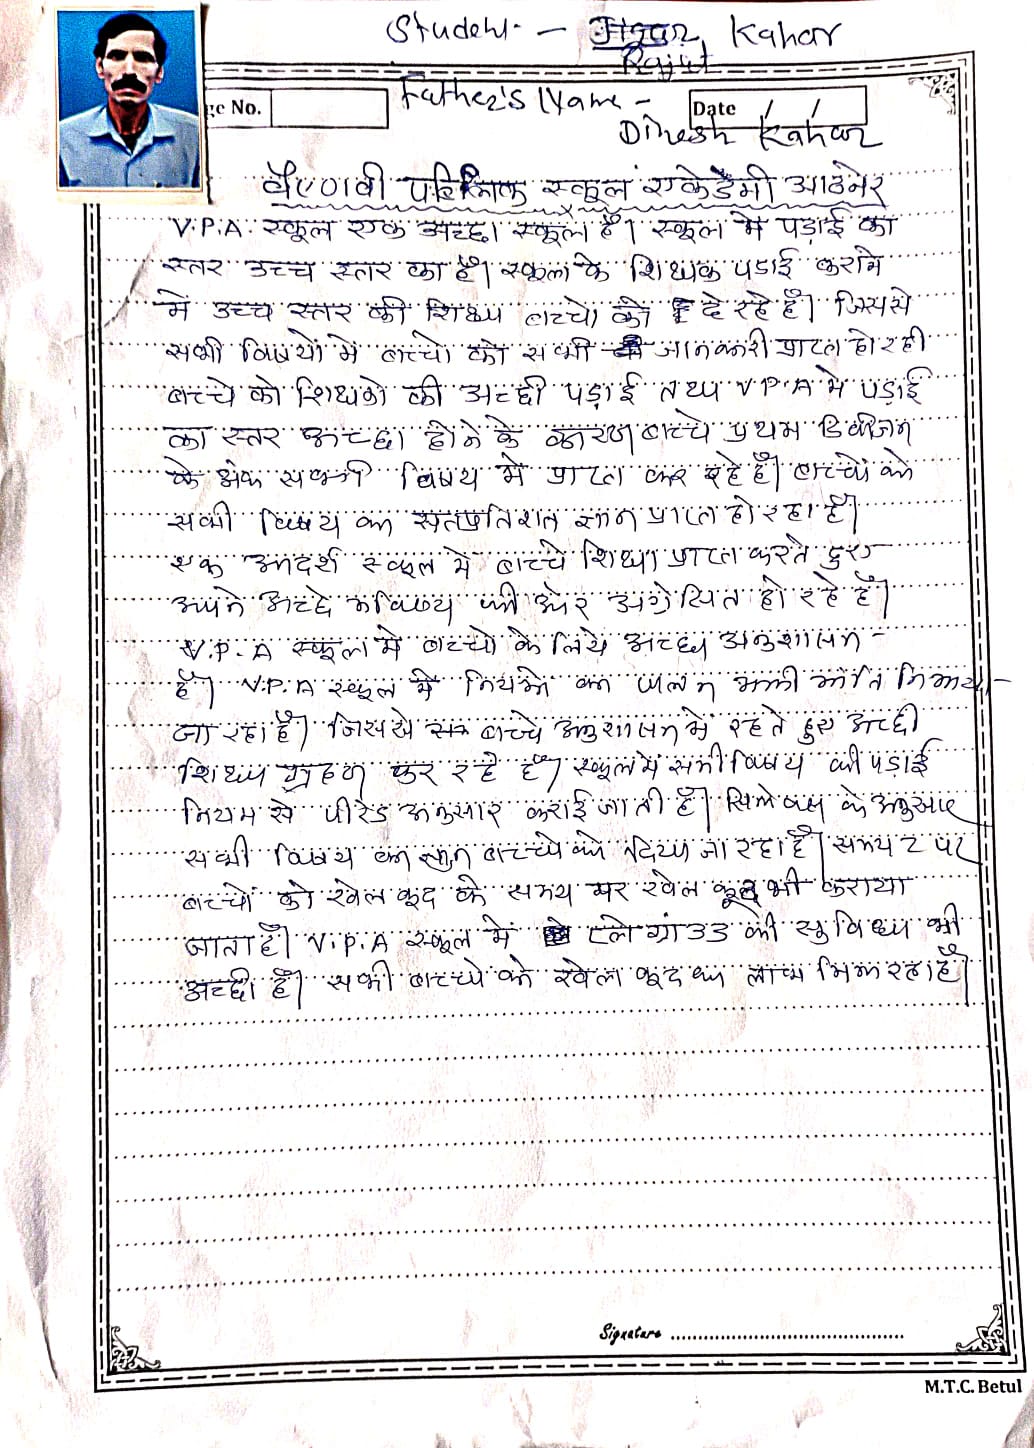 Student - Kahar
Rajat
Father's Name -
ge No.
Date / /
Dinesh Kahar
वैष्णवी पब्लिक स्कूल एकेडमी आठनेर
V.P.A. स्कूल एक अच्छा स्कूल है। स्कूल मे पड़ाई का
स्तर उच्च स्तर का है। स्कूल के शिथक पडाई कराने
मे उच्च स्तर की शिथा बच्चो को दे रहे हैं। जिससे
सभी विषयो मे बच्चो को सभी जानकारी प्राप्त हो रही
बच्चे को शिथको की अच्छी पड़ाई तथा V.P.A मे पड़ाई
का स्तर अच्छा होने के कारण बच्चे प्रथम डिवीजन
के अंक सभी विषय मे प्राप्त कर रहे हैं। बच्चो को
सभी विषय का सतप्रतिशत ज्ञान प्राप्त हो रहा है।
एक आदर्श स्कूल मे बच्चे शिथा प्राप्त करते हुए
अपने अच्छे भविष्य की ओर अग्रेसित हो रहे हैं।
V.P.A स्कूल मे बच्चो के लिये अच्छा अनुशासन -
हैं। V.P.A स्कूल मे नियमो का पालन भली भांति किया -
जा रहा है। जिससे बच्चे अनुशासन मे रहते हुए अच्छी
शिथा ग्रहण कर रहे हैं। स्कूल मे सभी विषय की पड़ाई
नियम से पीरेड अनुसार कराई जाती हैं। सिलेबस के अनुसार
सभी विषय का ज्ञान बच्चो को दिया जा रहा है। समय 2 पर
बच्चो को खेल कूद के समय पर खेल कूद भी कराया
जाता है। V.P.A स्कूल मे प्ले ग्रांउड की सुविधा भी
अच्छी हैं। सभी बच्चो को खेल कूद का लाभ मिल रहा हैं।
Signature
M.T.C. Betul